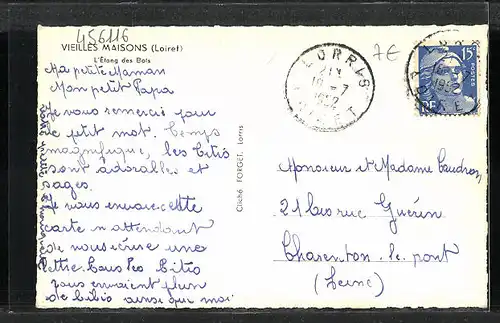 456116
7€
VIEILLES MAISONS (Loiret)
L'Étang des Bois
Ma petite Maman
Mon petit Papa
Je vous remercie pour
le petit mot. Temps
magnifique, les Titis
sont adorables et
sages.
Je vous envoie cette
carte n attendant
de vous écrire une
lettre. Tous les Titis
vous envoient plein
de bibis ainsi que moi
Cliché FORGET, Lorris
LORRIS
LOIRET
15F
RF
Monsieur et Madame
21 bis rue Guérin
Charenton-le-pont
(Seine)